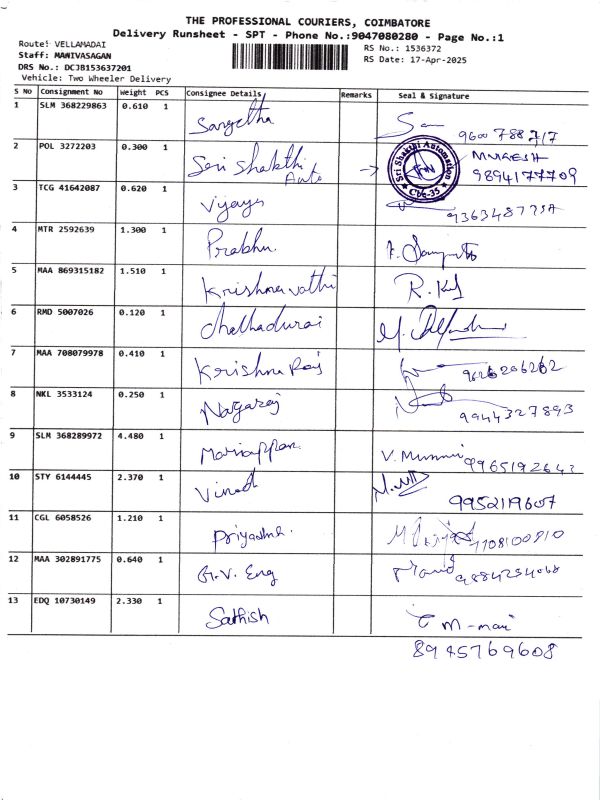 THE PROFESSIONAL COURIERS, COIMBATORE
Delivery Runsheet - SPT - Phone No.:9047080280 - Page No.:1
Route: VELLAMADAI
Staff: MANIVASAGAN
DRS No.: DCJ8153637201
Vehicle: Two Wheeler Delivery
RS No.: 1536372
RS Date: 17-Apr-2025
S No Consignment No Weight PCS Consignee Details Remarks Seal & Signature
1 SLM 368229863 0.610 1 Sangetha
9600788717
2 POL 3272203 0.300 1 Seri Shakthi Auto
Sri Shakthi Automation
Cbe-35
MURGESH
9894177709
3 TCG 41642087 0.620 1 Vijaya
4 MTR 2592639 1.300 1 Prabhu
5 MAA 869315182 1.510 1 Krishnavathi
6 RMD 5007026 0.120 1 Chelhadurai
7 MAA 708079978 0.410 1 Krishna Raj
9626206262
8 NKL 3533124 0.250 1 Nagaraj
9944327893
9 SLM 368289972 4.480 1 Mariappan
10 STY 6144445 2.370 1 Vinod
9952119607
11 CGL 6058526 1.210 1 Priyadha
7708100910
12 MAA 302891775 0.640 1 G.V. Eng
9884254068
13 EDQ 10730149 2.330 1 Sathish
8945769608